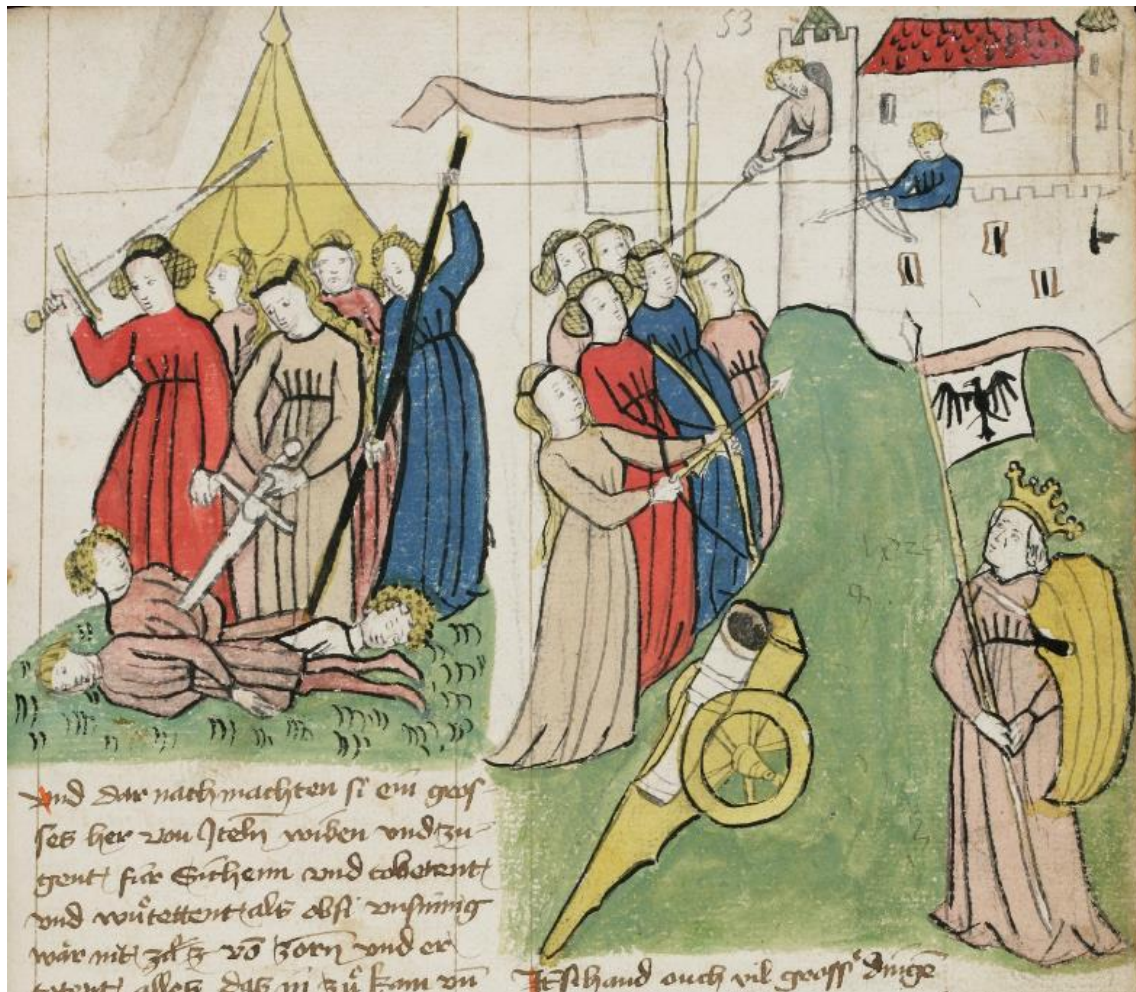 53
Und dar nach machten si ein gros
ses her von Iteln wiben vnd zu-
gent für Sichenn vnd tobetent
vnd wůtettent als obsi vnsinnig
wär nit vō zorn vnd er
totent alles das in zů kam vn
It si hand ouch vil gross dinge